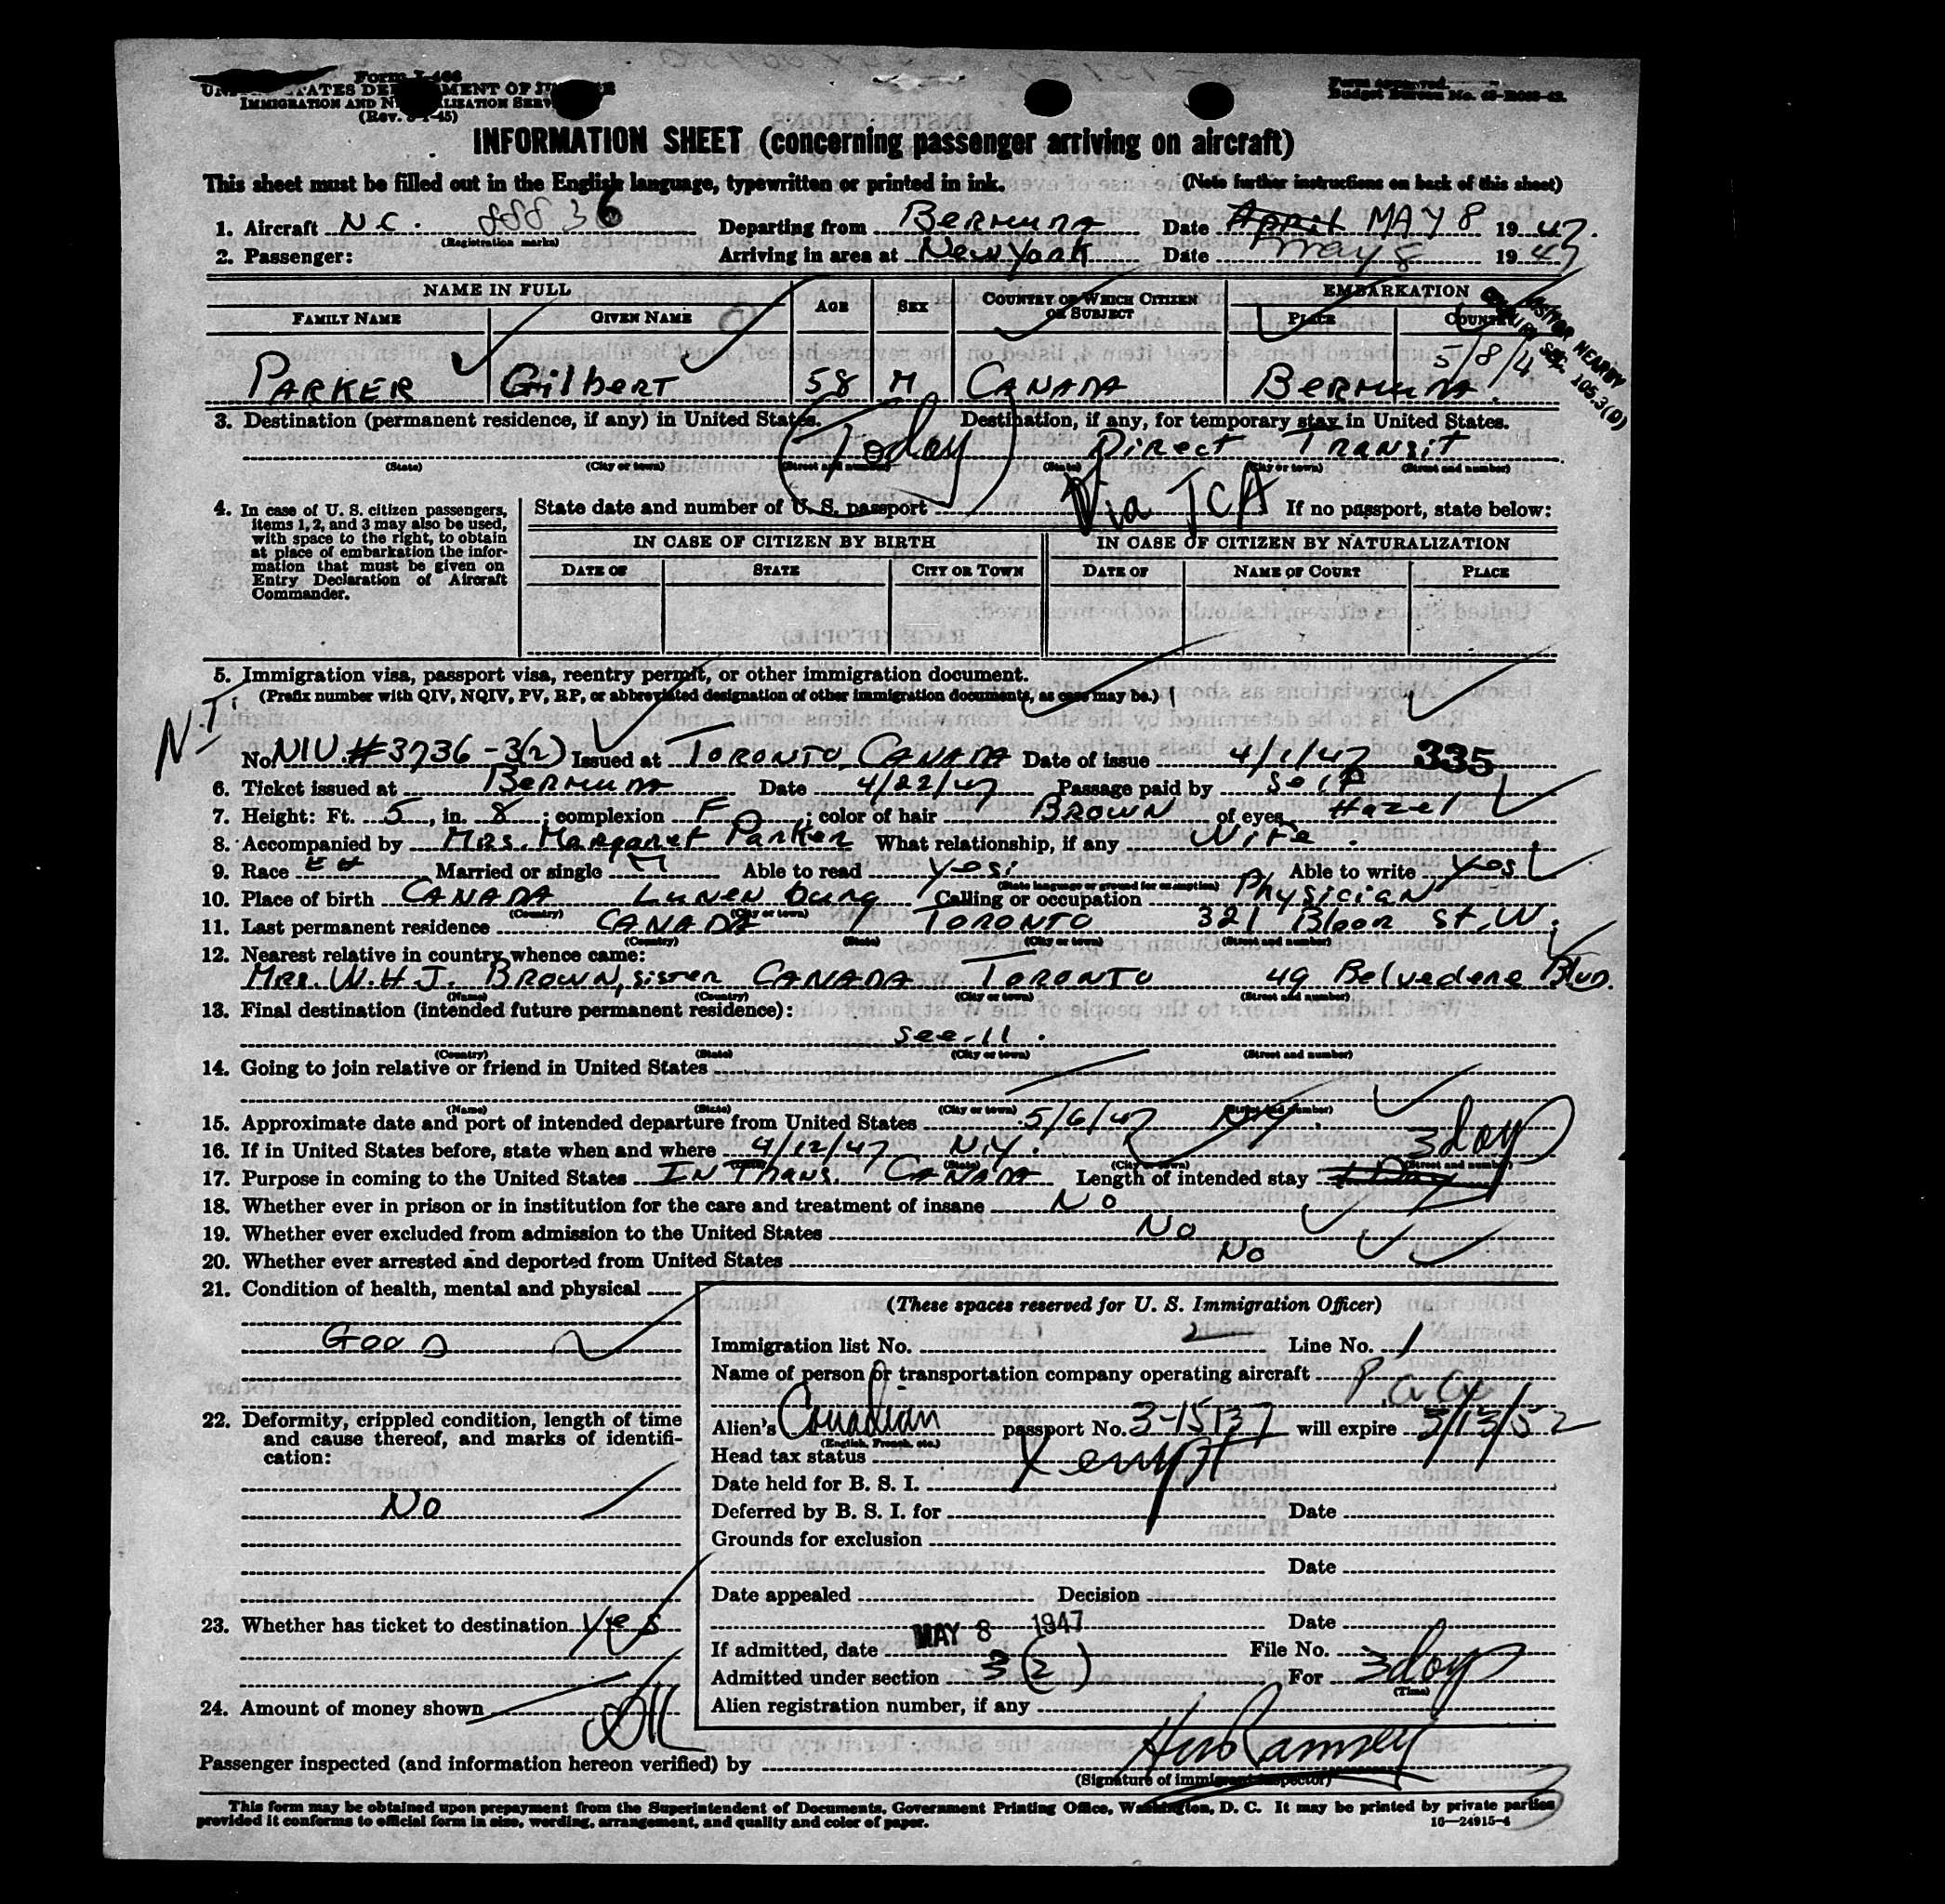 Form I-466
UNITED STATES DEPARTMENT OF JUSTICE
IMMIGRATION AND NATURALIZATION SERVICE
(Rev. 3-1-45)
Form approved.
Budget Bureau No.
INFORMATION SHEET (concerning passenger arriving on aircraft)
This sheet must be filled out in the English language, typewritten or printed in ink. (Note further instructions on back of this sheet)
1. Aircraft N.C. 88836 Departing from BERMUDA Date April MAY 8 1947.
(Registration marks)
2. Passenger: Arriving in area at New York Date May 8 1947
NAME IN FULL AGE SEX COUNTRY OF WHICH CITIZEN OR SUBJECT EMBARKATION
FAMILY NAME GIVEN NAME PLACE COUNTRY
NEARBY
SEC. 105.3(D)
5/8/4
PARKER Gilbert 58 M CANADA BERMUDA.
3. Destination (permanent residence, if any) in United States. Destination, if any, for temporary stay in United States.
Today Direct Transit
(State) (City or town) (Street and number) (State) (City or town) (Street and number)
Via TCA
4. In case of U. S. citizen passengers, items 1, 2, and 3 may also be used, with space to the right, to obtain at place of embarkation the information that must be given on Entry Declaration of Aircraft Commander.
State date and number of U. S. passport If no passport, state below:
IN CASE OF CITIZEN BY BIRTH IN CASE OF CITIZEN BY NATURALIZATION
DATE OF STATE CITY OR TOWN DATE OF NAME OF COURT PLACE
5. Immigration visa, passport visa, reentry permit, or other immigration document.
(Prefix number with QIV, NQIV, PV, RP, or abbreviated designation of other immigration documents, as case may be.)
N.I.
No. NIV. #3736-3(2) Issued at TORONTO, CANADA Date of issue 4/1/47 335
6. Ticket issued at BERMUDA Date 4/22/47 Passage paid by Self
7. Height: Ft. 5, in. 8; complexion F; color of hair BROWN of eyes Hazel
8. Accompanied by Mrs. Margaret Parker What relationship, if any Wife.
9. Race Married or single M Able to read Yes. Able to write Yes
(State language or ground for exemption)
10. Place of birth CANADA Lunenburg Calling or occupation Physician
(Country) (City or town)
11. Last permanent residence CANADA TORONTO 321 Bloor St. W.
(Country) (State) (City or town) (Street and number)
12. Nearest relative in country whence came:
Mrs. W.H.J. BROWN, sister CANADA TORONTO 49 Belvedere Blvd.
(Name) (Country) (City or town) (Street and number)
13. Final destination (intended future permanent residence):
See-11.
(Country) (State) (City or town) (Street and number)
14. Going to join relative or friend in United States
(Name) (State) (City or town) (Street and number)
15. Approximate date and port of intended departure from United States 5/6/47 N.Y.
16. If in United States before, state when and where 4/12/47 N.Y. 3 day
(State) (City or town) (Street and number)
17. Purpose in coming to the United States IN Trans. CANADA Length of intended stay 1 Day
18. Whether ever in prison or in institution for the care and treatment of insane No
19. Whether ever excluded from admission to the United States No
20. Whether ever arrested and deported from United States No
21. Condition of health, mental and physical
Good
22. Deformity, crippled condition, length of time and cause thereof, and marks of identification:
No
23. Whether has ticket to destination Yes
24. Amount of money shown
(These spaces reserved for U. S. Immigration Officer)
Immigration list No. 2 Line No. 1
Name of person or transportation company operating aircraft
Alien's Canadian passport No. 3-15137 will expire 3/13/52
(English, French, etc.)
Head tax status Xempt
Date held for B. S. I.
Deferred by B. S. I. for Date
Grounds for exclusion
Date
Date appealed Decision
Date
If admitted, date MAY 8 1947 File No.
Admitted under section 3(2) For 3 day
(Time)
Alien registration number, if any
Passenger inspected (and information hereon verified) by Ramsey
(Signature of immigrant inspector)
This form may be obtained upon prepayment from the Superintendent of Documents, Government Printing Office, Washington, D. C. It may be printed by private parties
provided it conforms to official form in size, wording, arrangement, and quality and color of paper. 16—24915-4